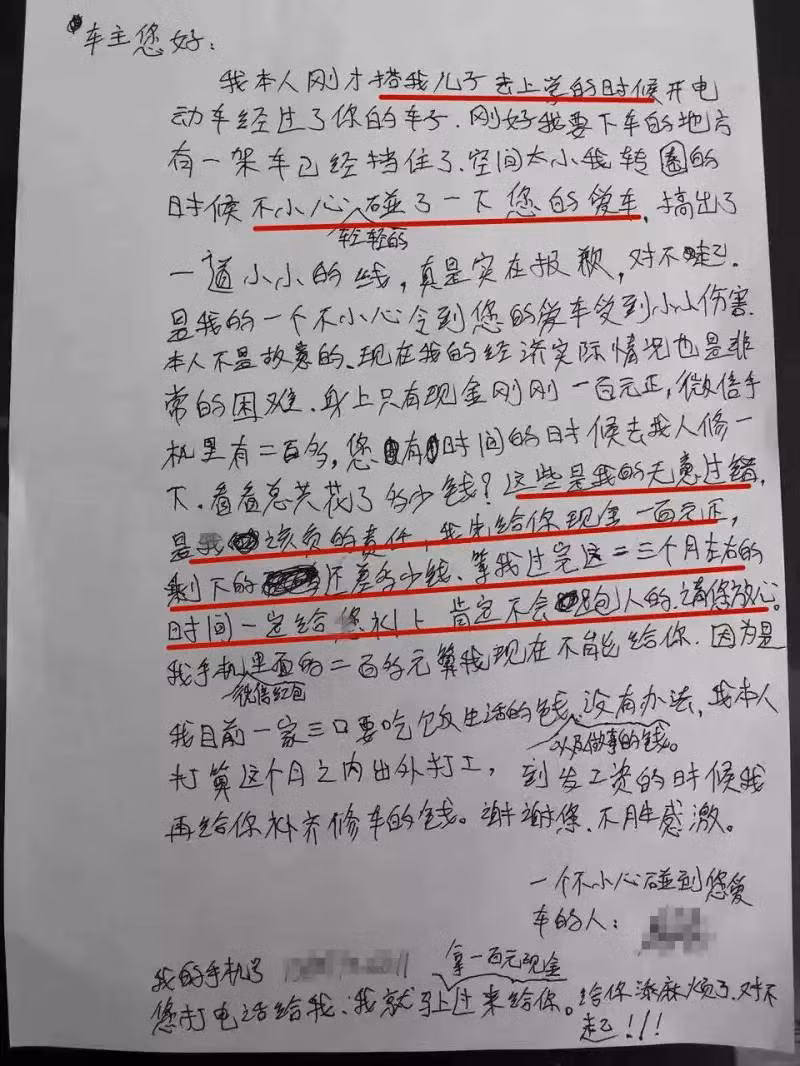 车主您好:
我本人刚才搭我儿子去上学的时候开电
动车经过了你的车子.刚好我要下车的地方
有一架车已经挡住了.空间太小我转圈的
时候不小心轻轻的碰了一下您的爱车,搞出了
一道小小的线,真是实在报歉,对不起.
是我的一个不小心令到您的爱车受到小小伤害.
本人不是故意的、现在我的经济实际情况也是非
常的困难.身上只有现金刚刚一百元正,微信手
机里有二百多,您有时间的时候去找人修一
下.看看总共花了多少钱?这些是我的无意过错,
是我该负的责任,我先给你现金一百元正,
剩下的还差多少钱、等我过完这二三个月左右的
时间一定给您补上肯定不会跑人的.请您放心。
我手机里面的微信红包二百多元算我现在不能给你.因为是
我目前一家三口要吃饭生活的钱以及做事的钱。没有办法,我本人
打算这个月之内出外打工,到发工资的时候我
再给你补齐修车的钱。谢谢您、不胜感激。
一个不小心碰到您爱
车的人:
我的手机号
您打电话给我、我就马上拿一百元现金过来给你。给你添麻烦了、对不
起!!!